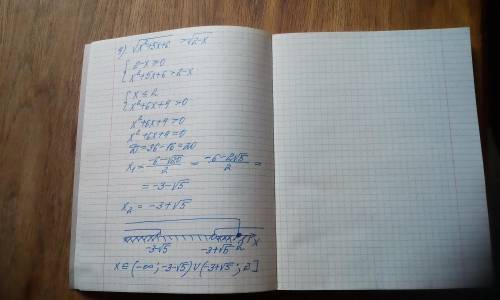 g) √x²+5x+6 > √2-x
{ 2-x ≥ 0
x²+5x+6 > 2-x
{ x ≤ 2
x²+6x+4 > 0
x²+6x+4 > 0
x²+6x+4 = 0
D = 36-16 = 20
x₁ = -6-√20 / 2 = -6-2√5 / 2 =
= -3-√5
x₂ = -3+√5
-3-√5 -3+√5 2 x
x ∈ (-∞; -3-√5) ∪ (-3+√5; 2]